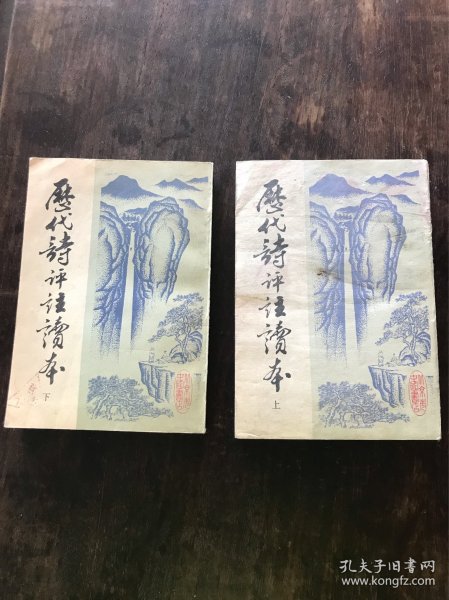 歷代詩评註讀本
下
歷代詩评註讀本
上
孔夫子旧书网
www.kongfz.com